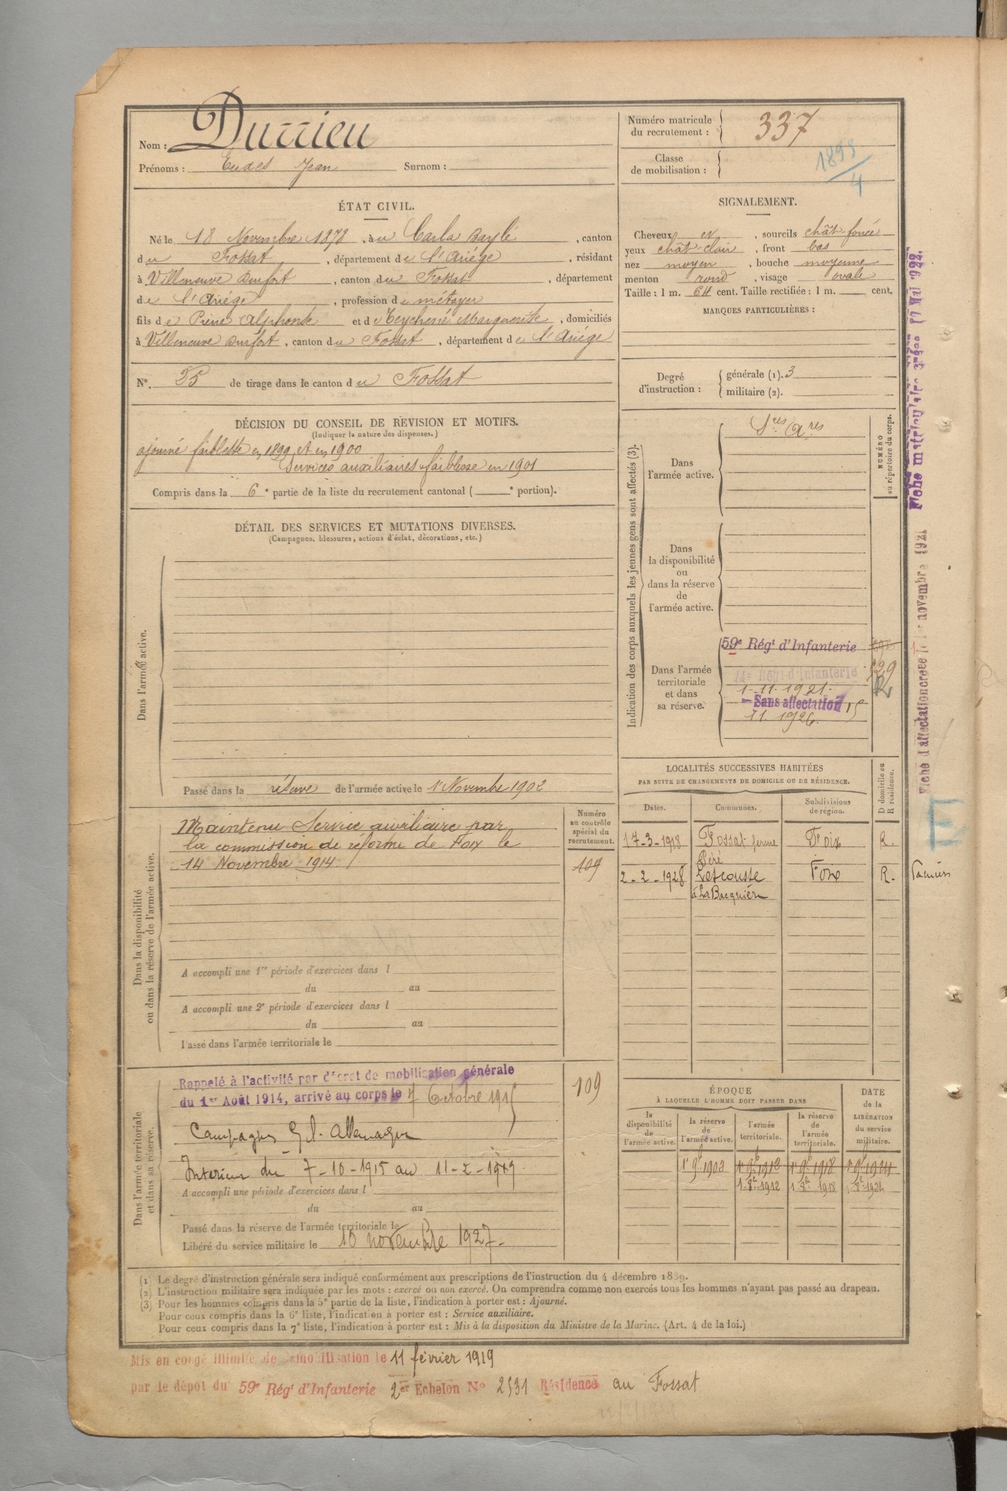 Nom : Durrieu
Prénoms : Eudes Jean Surnom :
Numéro matricule du recrutement : 337
Classe de mobilisation :
ÉTAT CIVIL.
Né le 18 Novembre 1878, à u Carla Bayle, canton
d u Fossat, département d e l'Ariège, résidant
à Villeneuve Durfort, canton d u Fossat, département
d e l'Ariège, profession d e métayer
fils d e Pierre Alphonse et d e Teychené Marguerite, domiciliés
à Villeneuve Durfort, canton d u Fossat, département d e l'Ariège
N°. 55 de tirage dans le canton d u Fossat
DÉCISION DU CONSEIL DE RÉVISION ET MOTIFS.
(Indiquer la nature des dispenses.)
ajourné faiblesse en 1899 et en 1900
Services auxiliaires faiblesse en 1901
Compris dans la 6e partie de la liste du recrutement cantonal ( e portion).
DÉTAIL DES SERVICES ET MUTATIONS DIVERSES.
(Campagnes, blessures, actions d'éclat, décorations, etc.)
Dans l'armée active.
Passé dans la réserve de l'armée active le 1er Novembre 1902
SIGNALEMENT.
Cheveux et, sourcils chât foncé
yeux chât clair, front bas
nez moyen, bouche moyenne
menton rond, visage ovale
Taille : 1 m. 64 cent. Taille rectifiée : 1 m. cent.
MARQUES PARTICULIÈRES :
Degré d'instruction :
générale (1). 3
militaire (2).
Indication des corps auxquels les jeunes gens sont affectés (3).
NUMÉRO au répertoire du corps.
Dans l'armée active.
Sces Ares
Dans la disponibilité ou dans la réserve de l'armée active.
Dans l'armée territoriale et dans sa réserve.
59e Régt d'Infanterie
Régt d'Infanterie
1-11-1921.
Sans affectation
11 1926.
LOCALITÉS SUCCESSIVES HABITÉES
PAR SUITE DE CHANGEMENTS DE DOMICILE OU DE RÉSIDENCE.
Dates. Communes. Subdivisions de région. D domicile ou R résidence.
17-3-1918 Fossat Foix R.
2-2-1928 Lescousse à La Bacquière Foix R. Pamiers
Dans la disponibilité ou dans la réserve de l'armée active.
Numéro au contrôle spécial du recrutement.
Maintenu Service auxiliaire par
la commission de réforme de Foix le
14 Novembre 1914.
109
A accompli une 1re période d'exercices dans l
du au
A accompli une 2e période d'exercices dans l
du au
Passé dans l'armée territoriale le
Dans l'armée territoriale et dans sa réserve.
Rappelé à l'activité par décret de mobilisation générale
du 1er Août 1914, arrivé au corps le 7 Octobre 1915
109
Campagnes Allemagne
Intérieur du 7-10-1915 au 11-2-1919
A accompli une période d'exercices dans l
du au
Passé dans la réserve de l'armée territoriale le
Libéré du service militaire le 10 novembre 1927.
ÉPOQUE
À LAQUELLE L'HOMME DOIT PASSER DANS
la disponibilité de l'armée active.
la réserve de l'armée active.
l'armée territoriale.
la réserve de l'armée territoriale.
DATE de la LIBÉRATION du service militaire.
(1) Le degré d'instruction générale sera indiqué conformément aux prescriptions de l'instruction du 4 décembre 1889.
(2) L'instruction militaire sera indiquée par les mots : exercé ou non exercé. On comprendra comme non exercés tous les hommes n'ayant pas passé au drapeau.
(3) Pour les hommes compris dans la 5e partie de la liste, l'indication à porter est : Ajourné.
Pour ceux compris dans la 6e liste, l'indication à porter est : Service auxiliaire.
Pour ceux compris dans la 7e liste, l'indication à porter est : Mis à la disposition du Ministre de la Marine. (Art. 4 de la loi.)
Mis en congé illimité de démobilisation le 11 février 1919
par le dépôt du 59e Régt d'Infanterie 2er Echelon N° 2531 Résidence au Fossat
Fiche matriculaire
Fiche d'affectation créée le novembre 1921